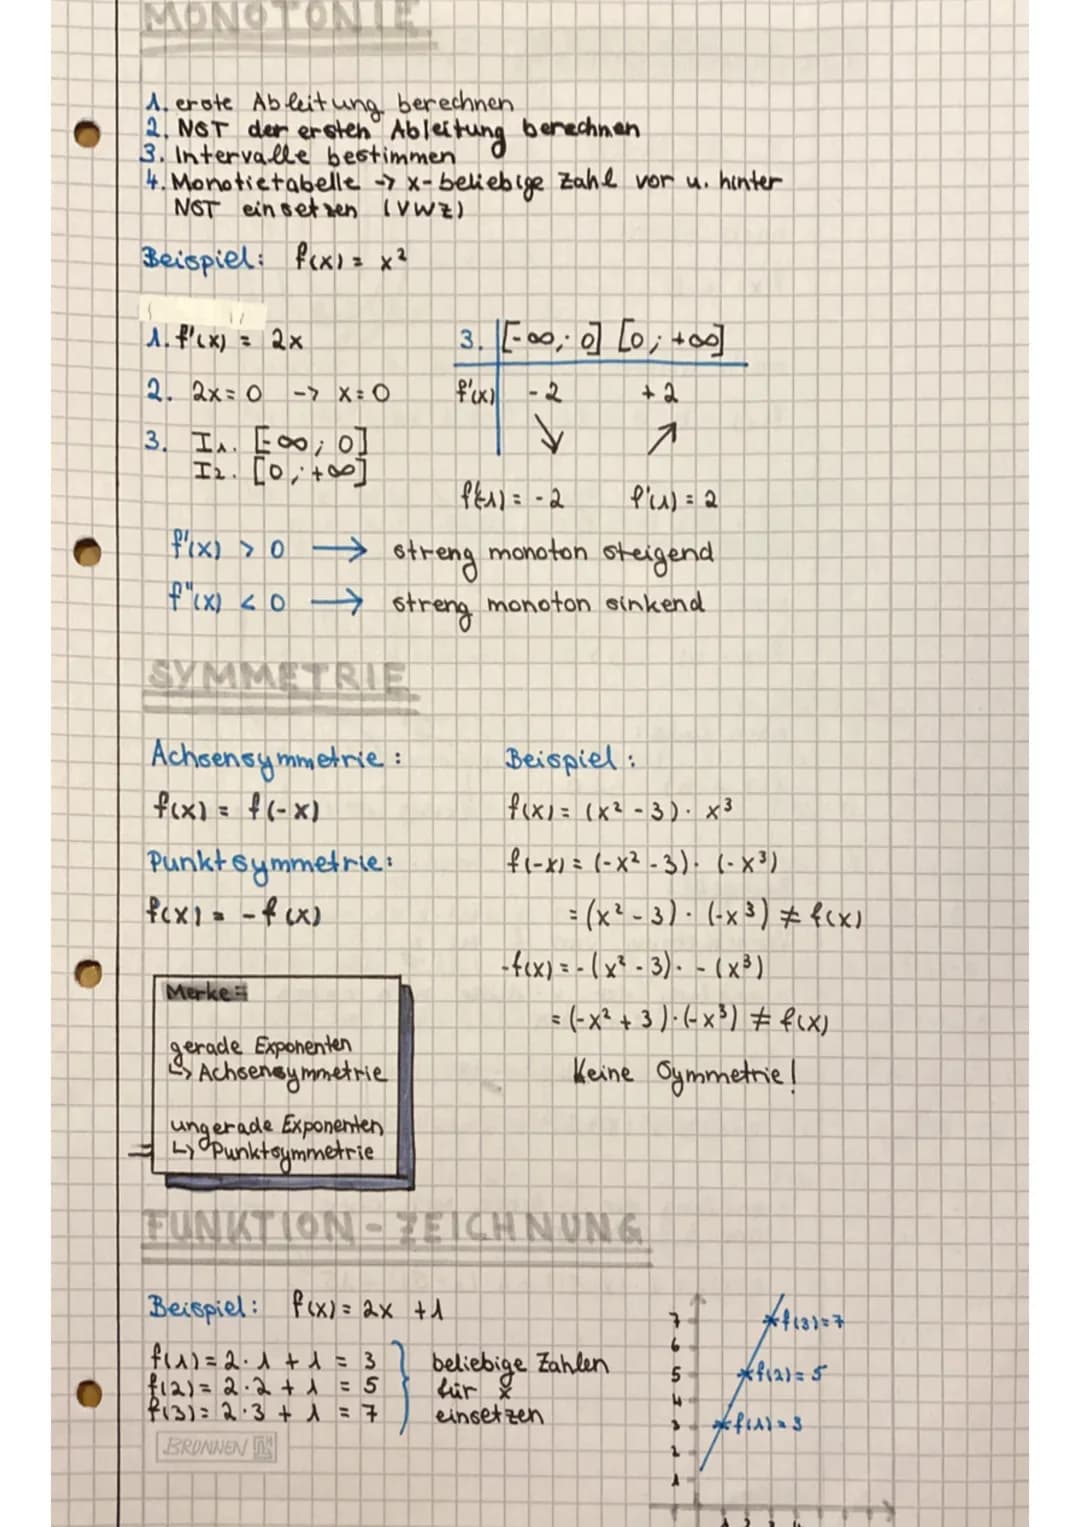 MONOTONIE
1. erste Ableitung berechnen
2. NST der ersten Ableitung berechnen
3. Intervalle bestimmen
4. Monotietabelle -> x-beliebige Zahl vor u. hinter
NST einsetzen (VWZ)
Beispiel: f(x) = x²
1. f'(x) = 2x
2. 2x = 0 -> x = 0
3. I1. [-∞; 0]
I2. [0; +∞]
3. [-∞; 0] [0; +∞]
f'(x) -2 +2
↘ ↗
f'(-1) = -2 f'(1) = 2
f'(x) > 0 → streng monoton steigend
f"(x) < 0 → streng monoton sinkend
SYMMETRIE
Achsensymmetrie:
f(x) = f(-x)
Punktsymmetrie:
f(x) = -f(x)
Merke:
gerade Exponenten
↳ Achsensymmetrie
ungerade Exponenten
↳ Punktsymmetrie
Beispiel:
f(x) = (x² - 3) · x³
f(-x) = (-x² - 3) · (-x³)
= (x² - 3) · (-x³) ≠ f(x)
-f(x) = -(x² - 3) · -(x³)
= (-x² + 3) · (-x³) ≠ f(x)
Keine Symmetrie!
FUNKTION - ZEICHNUNG
Beispiel: f(x) = 2x + 1
f(1) = 2·1 + 1 = 3
f(2) = 2·2 + 1 = 5
f(3) = 2·3 + 1 = 7
beliebige Zahlen
für x
einsetzen
BRUNNEN
7
6
5
4
3
2
1
f(3) = 7
f(2) = 5
f(1) = 3
1 2 3 4